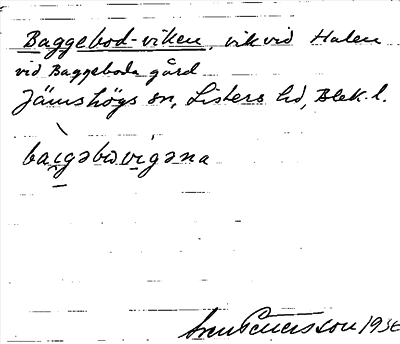 Baggebod-viken, vik vid Halen
vid Baggeboda gård
Jämshögs sn, Listers hd, Blek. l.
baigəbωvigəna
Sven Petersson 1936